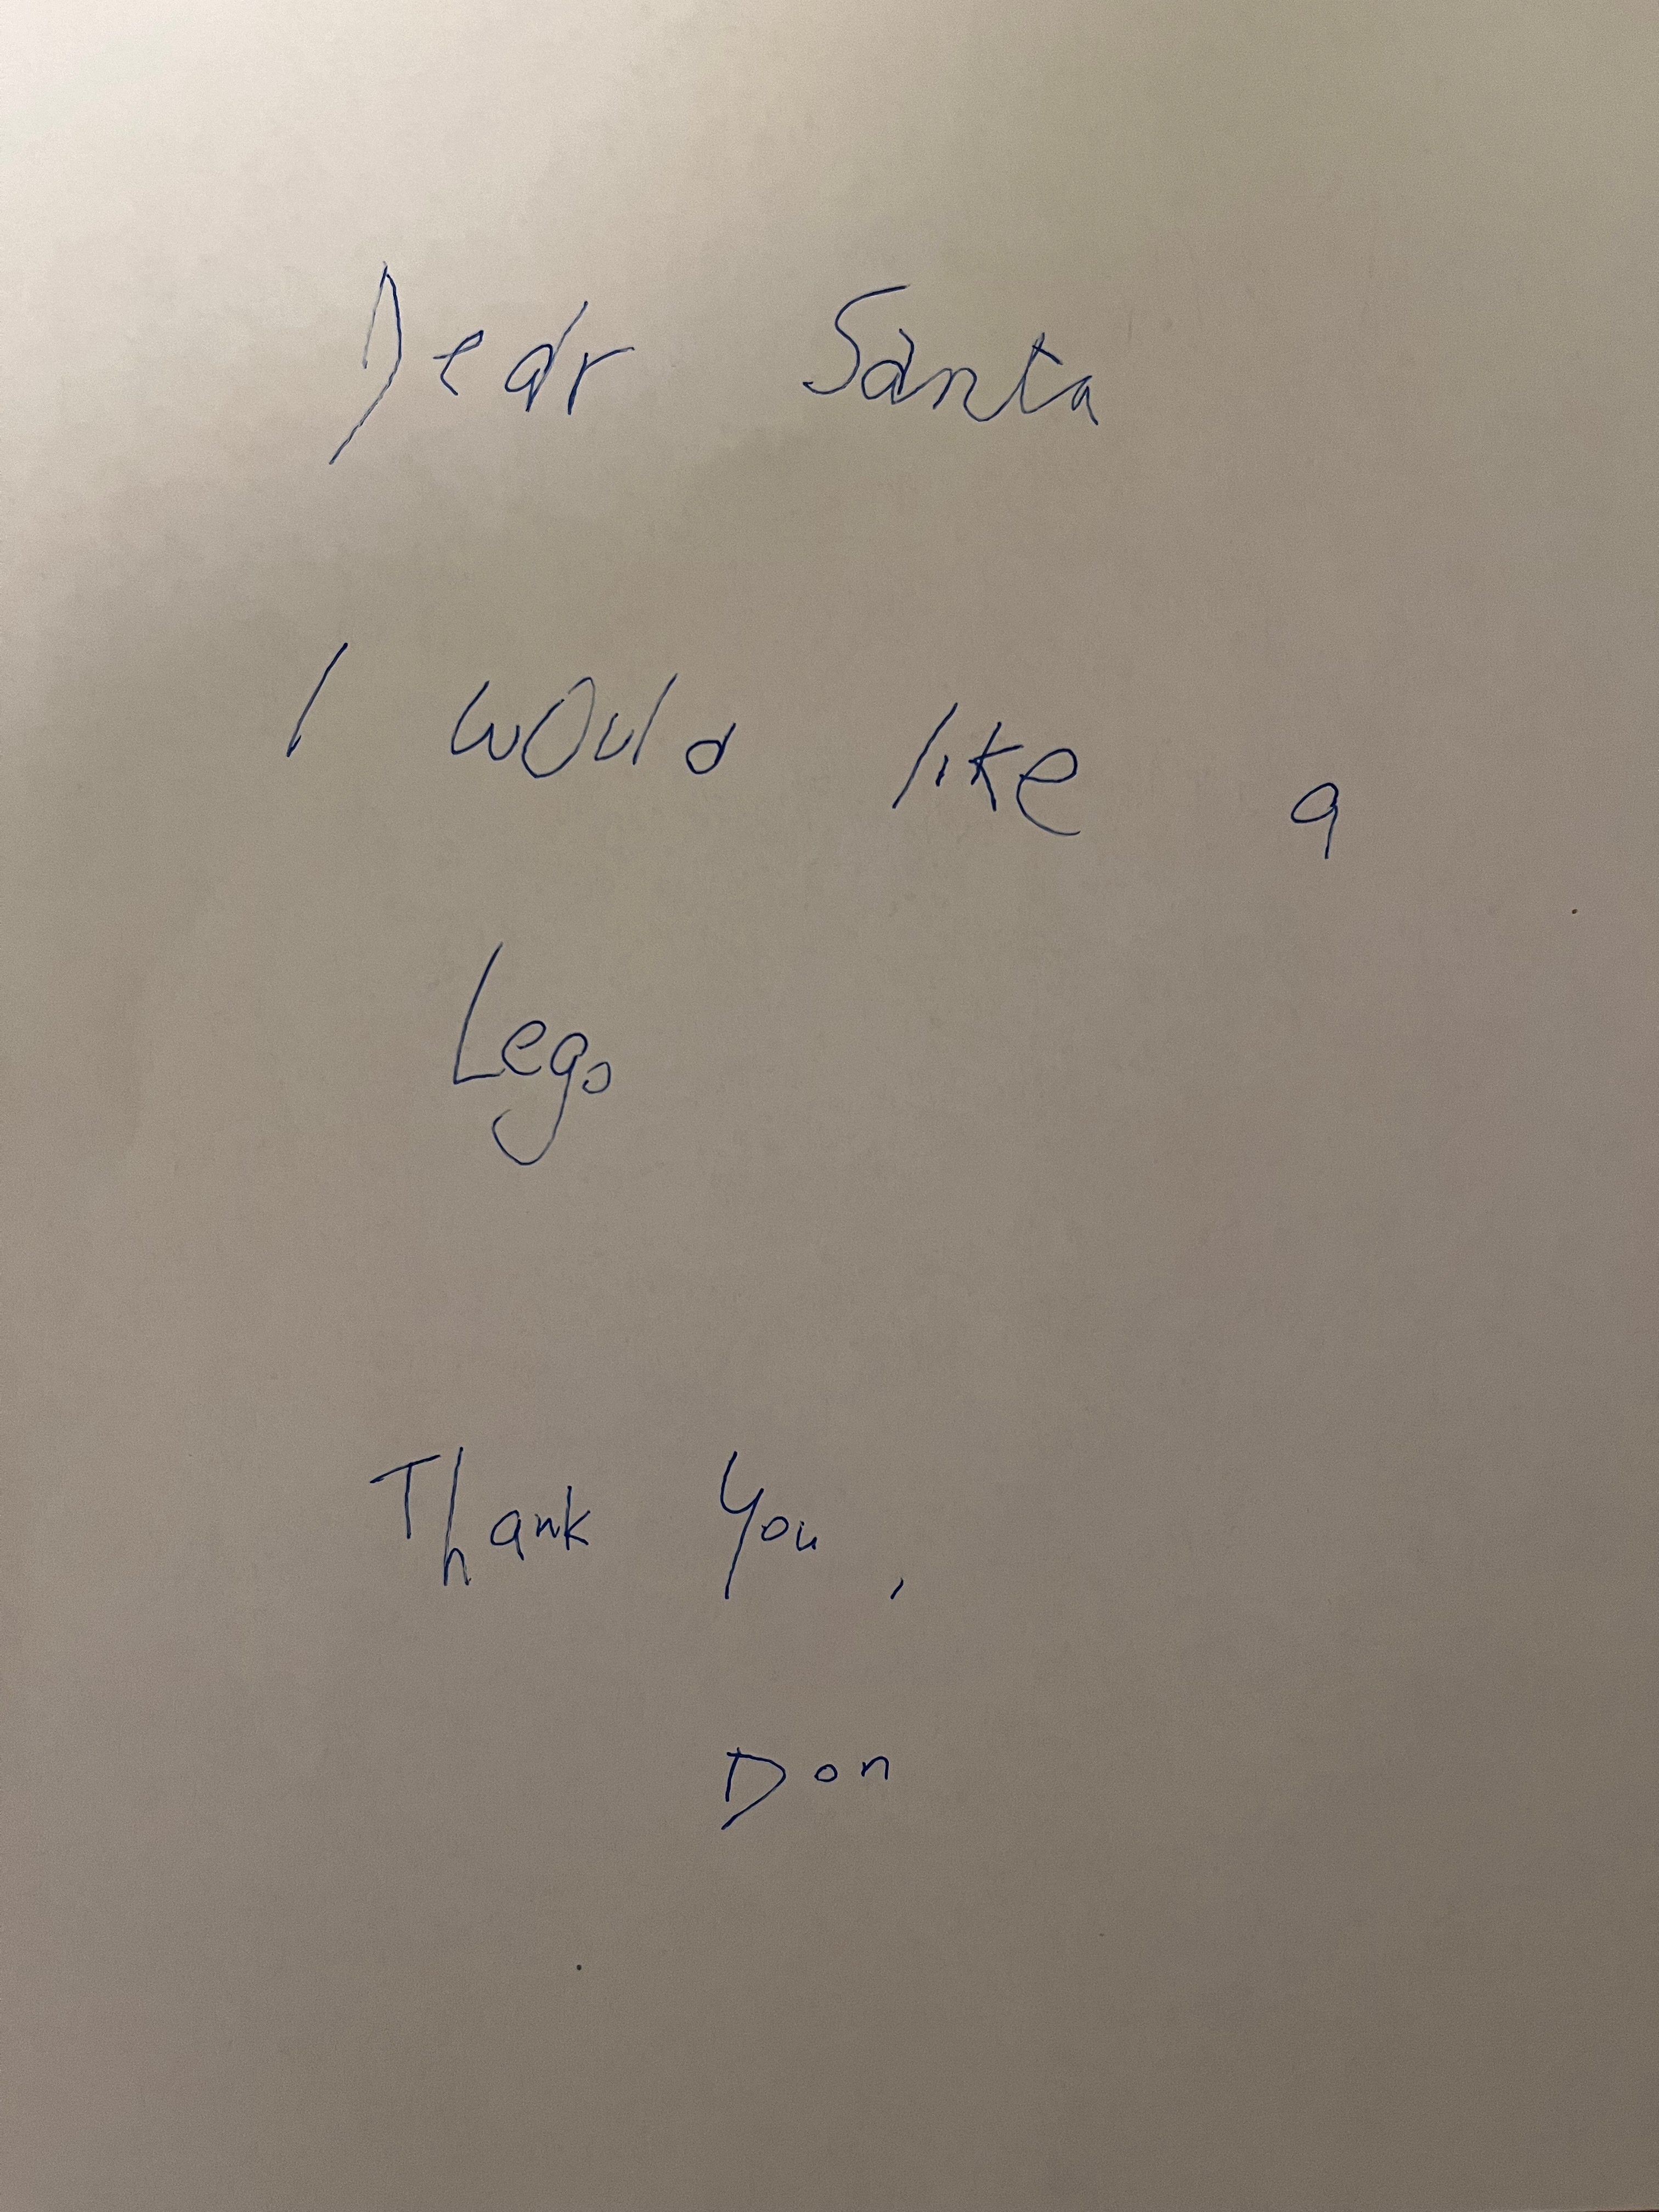 Dear Santa
I would like a
Lego
Thank You,
Don